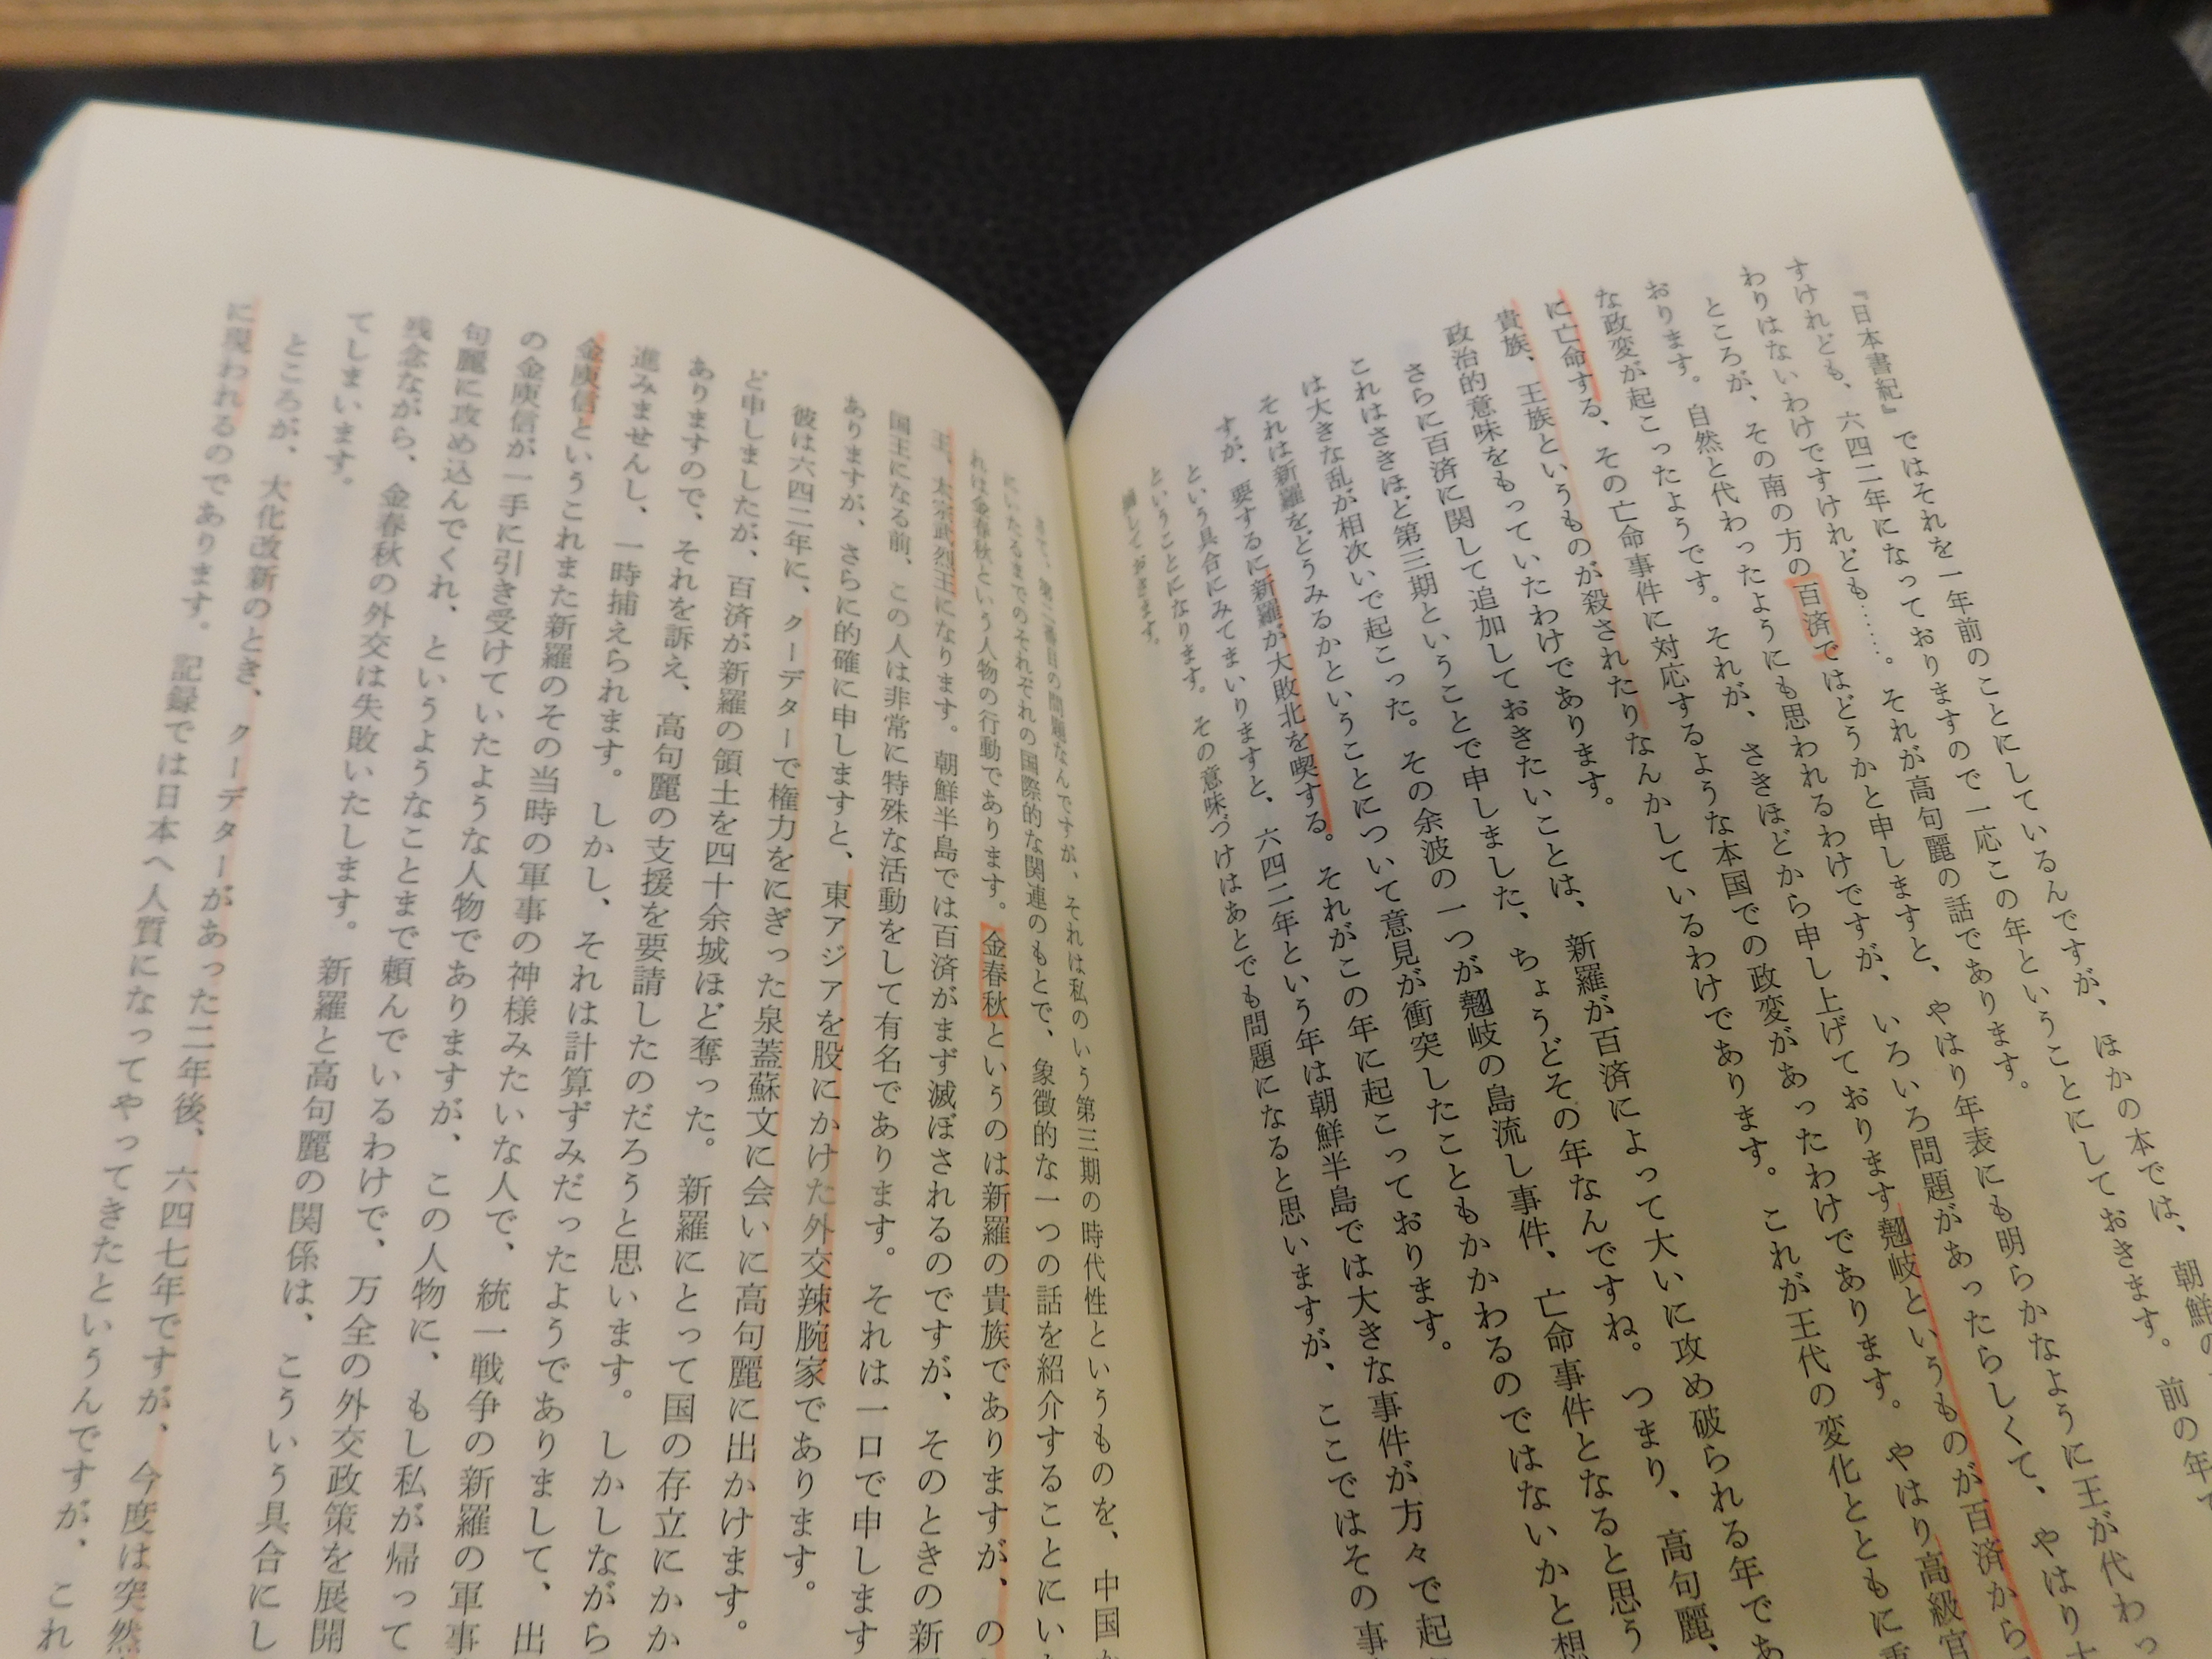 『日本書紀』ではそれを一年前のことにしているんですが、ほかの本では、朝鮮の
すけれども、六四二年になっておりますので一応この年ということにしておきます。前の年で
わりはないわけですけれども……。それが高句麗の話であります。
ところが、その南の方の百済ではどうかと申しますと、やはり年表にも明らかなように王が代わっ
おります。自然と代わったようにも思われるわけですが、いろいろ問題があったらしくて、やはり
な政変が起こったようです。それが、さきほどから申し上げております翹岐というものが百済から
に亡命する、その亡命事件に対応するような本国での政変があったわけであります。やはり高級官
貴族、王族というものが殺されたりなんかしているわけであります。これが王代の変化とともに
政治的意味をもっていたわけであります。
さらに百済に関して追加しておきたいことは、新羅が百済によって大いに攻め破られる年であ
これはさきほど第三期ということで申しました、ちょうどその年なんですね。つまり、高句麗、
は大きな乱が相次いで起こった。その余波の一つが翹岐の島流し事件、亡命事件となると思う
それは新羅をどうみるかということについて意見が衝突したこともかかわるのではないかと想
すが、要するに新羅が大敗北を喫する。それがこの年に起こっております。
という具合にみてまいりますと、六四二年という年は朝鮮半島では大きな事件が方々で起
ということになります。その意味づけはあとでも問題になると思いますが、ここではその事
摘しておきます。
さて、第二番目の問題なんですが、それは私のいう第三期の時代性というものを、中国か
にいたるまでのそれぞれの国際的な関連のもとで、象徴的な一つの話を紹介することにい
れは金春秋という人物の行動であります。金春秋というのは新羅の貴族でありますが、の
王、太宗武烈王になります。朝鮮半島では百済がまず滅ぼされるのですが、そのときの新
国王になる前、この人は非常に特殊な活動をして有名であります。それは一口で申します
ありますが、さらに的確に申しますと、東アジアを股にかけた外交辣腕家であります。
彼は六四二年に、クーデターで権力をにぎった泉蓋蘇文に会いに高句麗に出かけます。
ど申しましたが、百済が新羅の領土を四十余城ほど奪った。新羅にとって国の存立にかか
ありますので、それを訴え、高句麗の支援を要請したのだろうと思います。しかしながら
進みませんし、一時捕えられます。しかし、それは計算ずみだったようでありまして、出
金庾信というこれまた新羅のその当時の軍事の神様みたいな人で、統一戦争の新羅の軍事
の金庾信が一手に引き受けていたような人物でありますが、この人物に、もし私が帰って
句麗に攻め込んでくれ、というようなことまで頼んでいるわけで、万全の外交政策を展開
残念ながら、金春秋の外交は失敗いたします。新羅と高句麗の関係は、こういう具合にし
てしまいます。
ところが、大化改新のとき、クーデターがあった二年後、六四七年ですが、今度は突然
に現われるのであります。記録では日本へ人質になってやってきたというんですが、これ